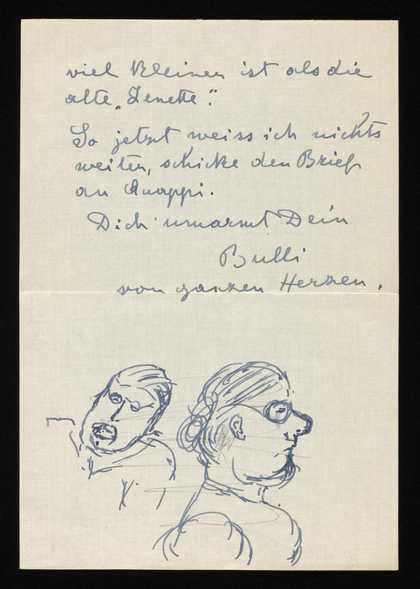 viel kleiner ist als die
alte „Zenette".
So jetzt weiss ich nichts
weiter, schicke den Brief
an Quappi.
Dich umarmt Dein
Bulli
von ganzen Herzen.